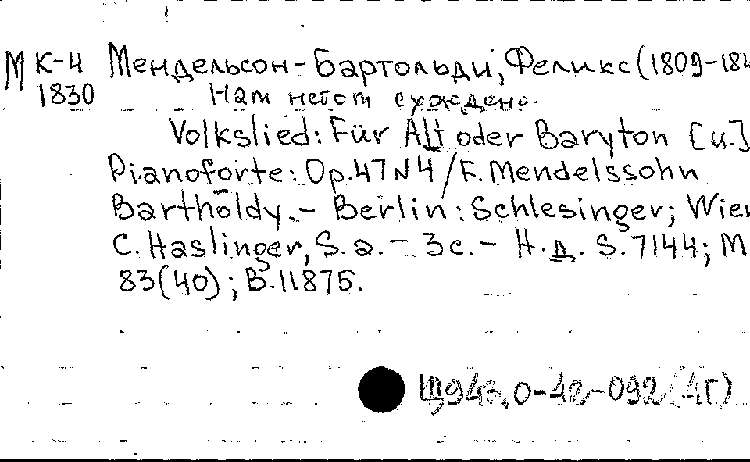 М К-4 Мендельсон-Бартольди, Феликс (1809-184
1830 Нам
Volkslied: Für Alt oder Baryton [u.]
Pianoforte: Op. 47 N 4 / F. Mendelssohn
Bartholdy. - Berlin: Schlesinger; Wien
C. Haslinger, S. a. - 3 c. - Н. д. S. 7144; M
83(40); B. 11875.
Щ943.0-42-092(4Г)